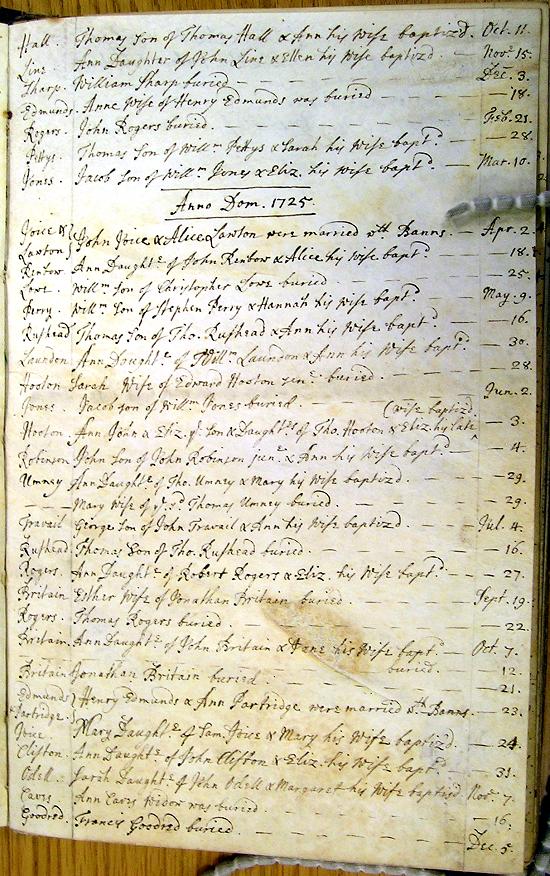 Hall. Thomas Son of Thomas Hall & Ann his Wife baptizd. Oct. 11.
Line Ann Daughter of John Line & Ellen his Wife baptizd. Novr 15.
Sharp. William Sharp buried. Dec. 3.
Edmunds. Anne Wife of Henry Edmunds was buried — 18.
Rogers. John Rogers buried. Feb. 21.
Pettys. Thomas Son of Willm Pettys & Sarah his Wife baptd. — 28.
Jones. Jacob Son of Willm Jones & Eliz. his Wife baptd. Mar. 10.
Anno Dom. 1725.
Joice & Lawton John Joice & Alice Lawton were married wth Banns. Apr. 2.
Renbow Ann Daughtr of John Renbow & Alice his Wife baptd. — 18.
Lowe. Willm Son of Christopher Lowe buried. — 25.
Perry. Willm Son of Stephen Perry & Hannah his Wife baptd. May. 9.
Rushead Thomas Son of Tho. Rushead & Ann his Wife baptd. — 16.
Laundon Ann Daughtr of Willm Laundon & Ann his Wife baptd. — 30.
Hooton Sarah Wife of Edward Hooton senr. buried. — 28.
Jones. Jacob son of Willm Jones buried. Jun. 2.
(wife baptizd.
Hooton. Ann John & Eliz. ye. Son & Daughtrs of Tho. Hooton & Eliz. his late ^ — 3.
Robinson John Son of John Robinson junr. & Ann his Wife baptd. — 4.
Umney Ann Daughtr of Tho. Umney & Mary his Wife baptizd. — 29.
— Mary Wife of ye. sd Thomas Umney buried. — 29.
Travail George Son of John Travail & Ann his Wife baptizd. Jul. 4.
Rushead Thomas Son of Tho. Rushead buried. — 16.
Rogers. Ann Daughtr of Robert Rogers & Eliz. his Wife baptd. — 27.
Britain Esther Wife of Jonathan Britain buried. Sept. 19.
Rogers. Thomas Rogers buried — 22.
Britain. Ann Daughtr of John Britain & his Wife baptd. Oct. 7.
buried. — 12.
Britain Jonathan Britain buried. — 21.
Edmunds & Partridge. Henry Edmunds & Ann Partridge were married wth Banns. — 23.
Joice Mary Daughtr of Sam. Joice & Mary his Wife baptizd. — 24.
Clifton. Ann Daughtr of John Clifton & Eliz. his Wife baptd. — 31.
Odell. Sarah Daughtr of John Odell & Margaret his Wife baptizd Nov. 7.
Eaves Ann Eaves Widow was buried. — 16.
Goodred. Francis Goodred buried. Dec. 5.